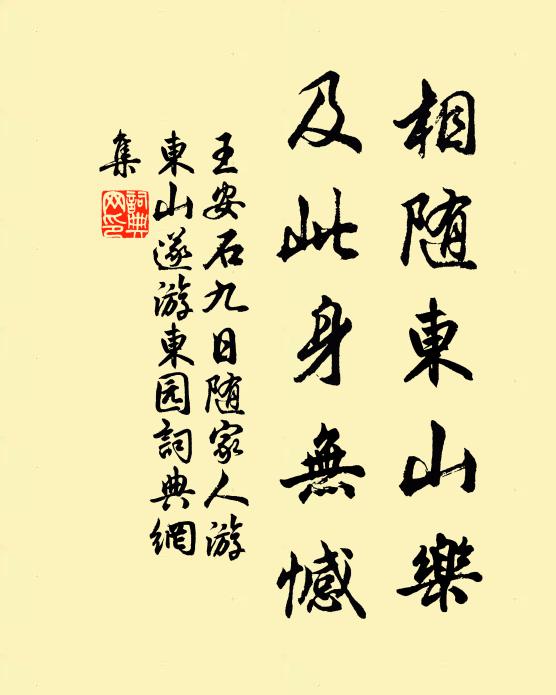 相随東山樂
及此身無憾
王安石九日随家人游
東山遂游東园詞典網
集
詞典
网印